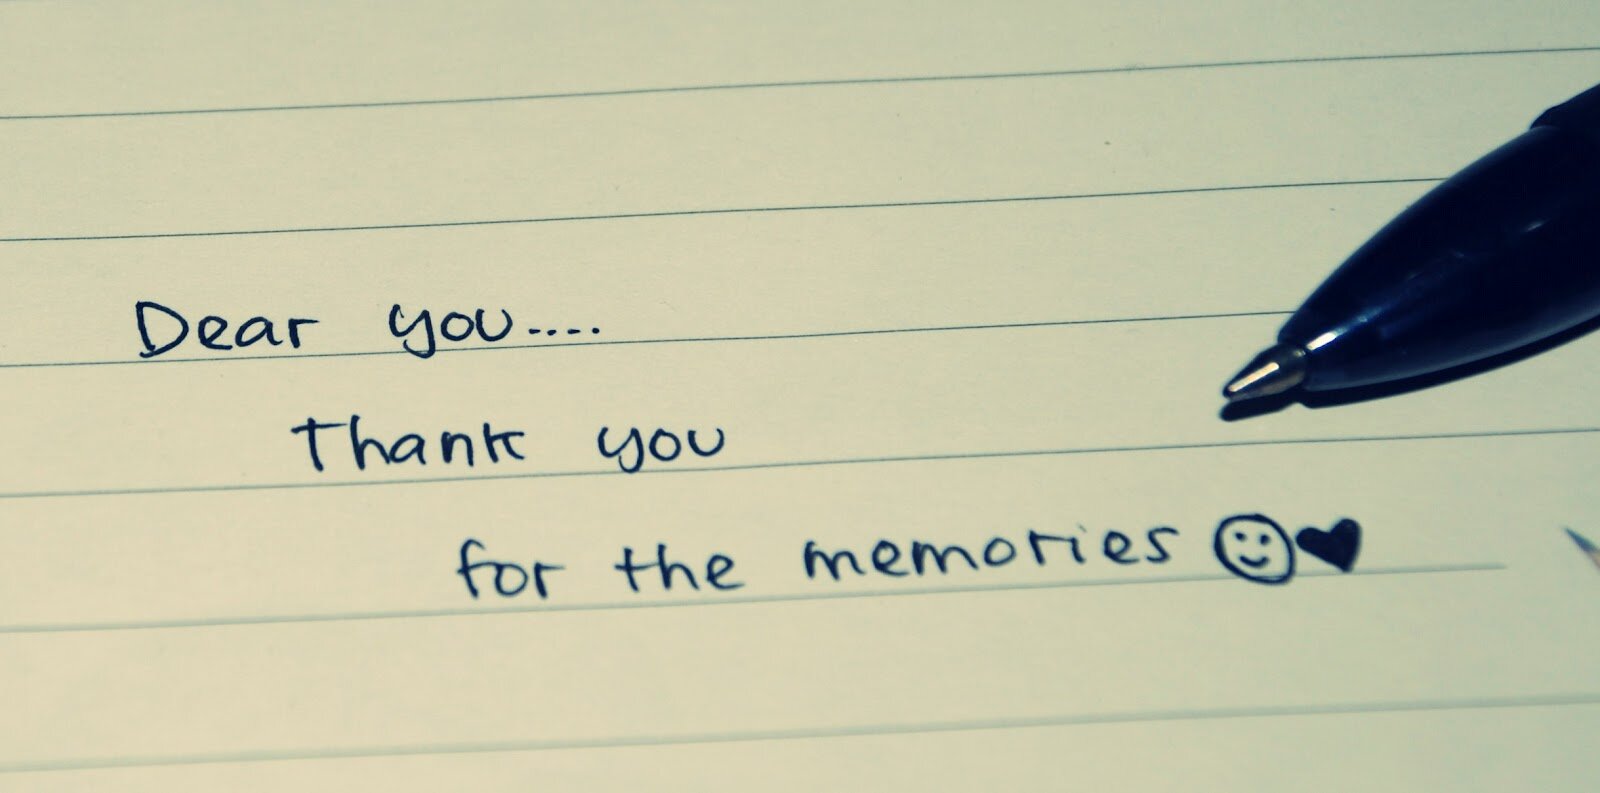 Dear you....
Thank you
for the memories ☺♥